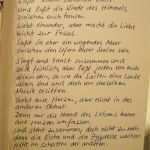 Und laßt die Winde des Himmels
zwischen euch tanzen.
Liebt einander, aber macht die Liebe
nicht zur Fessel.
Laßt sie eher ein wogendes Meer
zwischen den Ufern eurer Seelen sein.
Singt und tanzt zusammen und
seid fröhlich, aber laßt jeden von euch
allein sein, so wie die Saiten einer Laute
allein sind und doch von derselben
Musik erzittern.
Gebt eure Herzen, aber nicht in des
anderen Obhut.
Denn nur die Hand des Lebens kann
eure Herzen umfassen.
Und steht zusammen, doch nicht zu nah
denn die Eiche und die Zypresse wachsen
nicht im Schatten der anderen